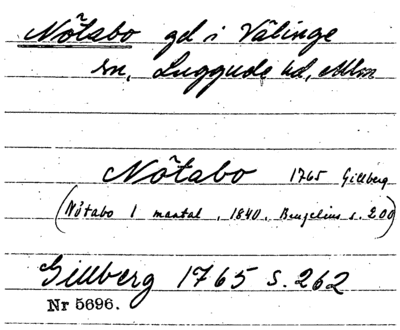 Nötabo gd i Välinge
sn, Luggude hd, Mlm
Nötabo 1765 Gillberg
(Nötabo 1 mantal, 1840, Bengelius s. 200)
Gillberg 1765 s. 262
Nr 5696.